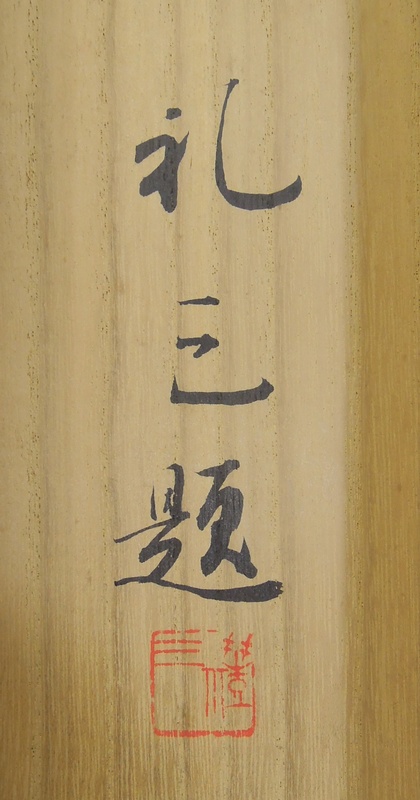 礼
三
題